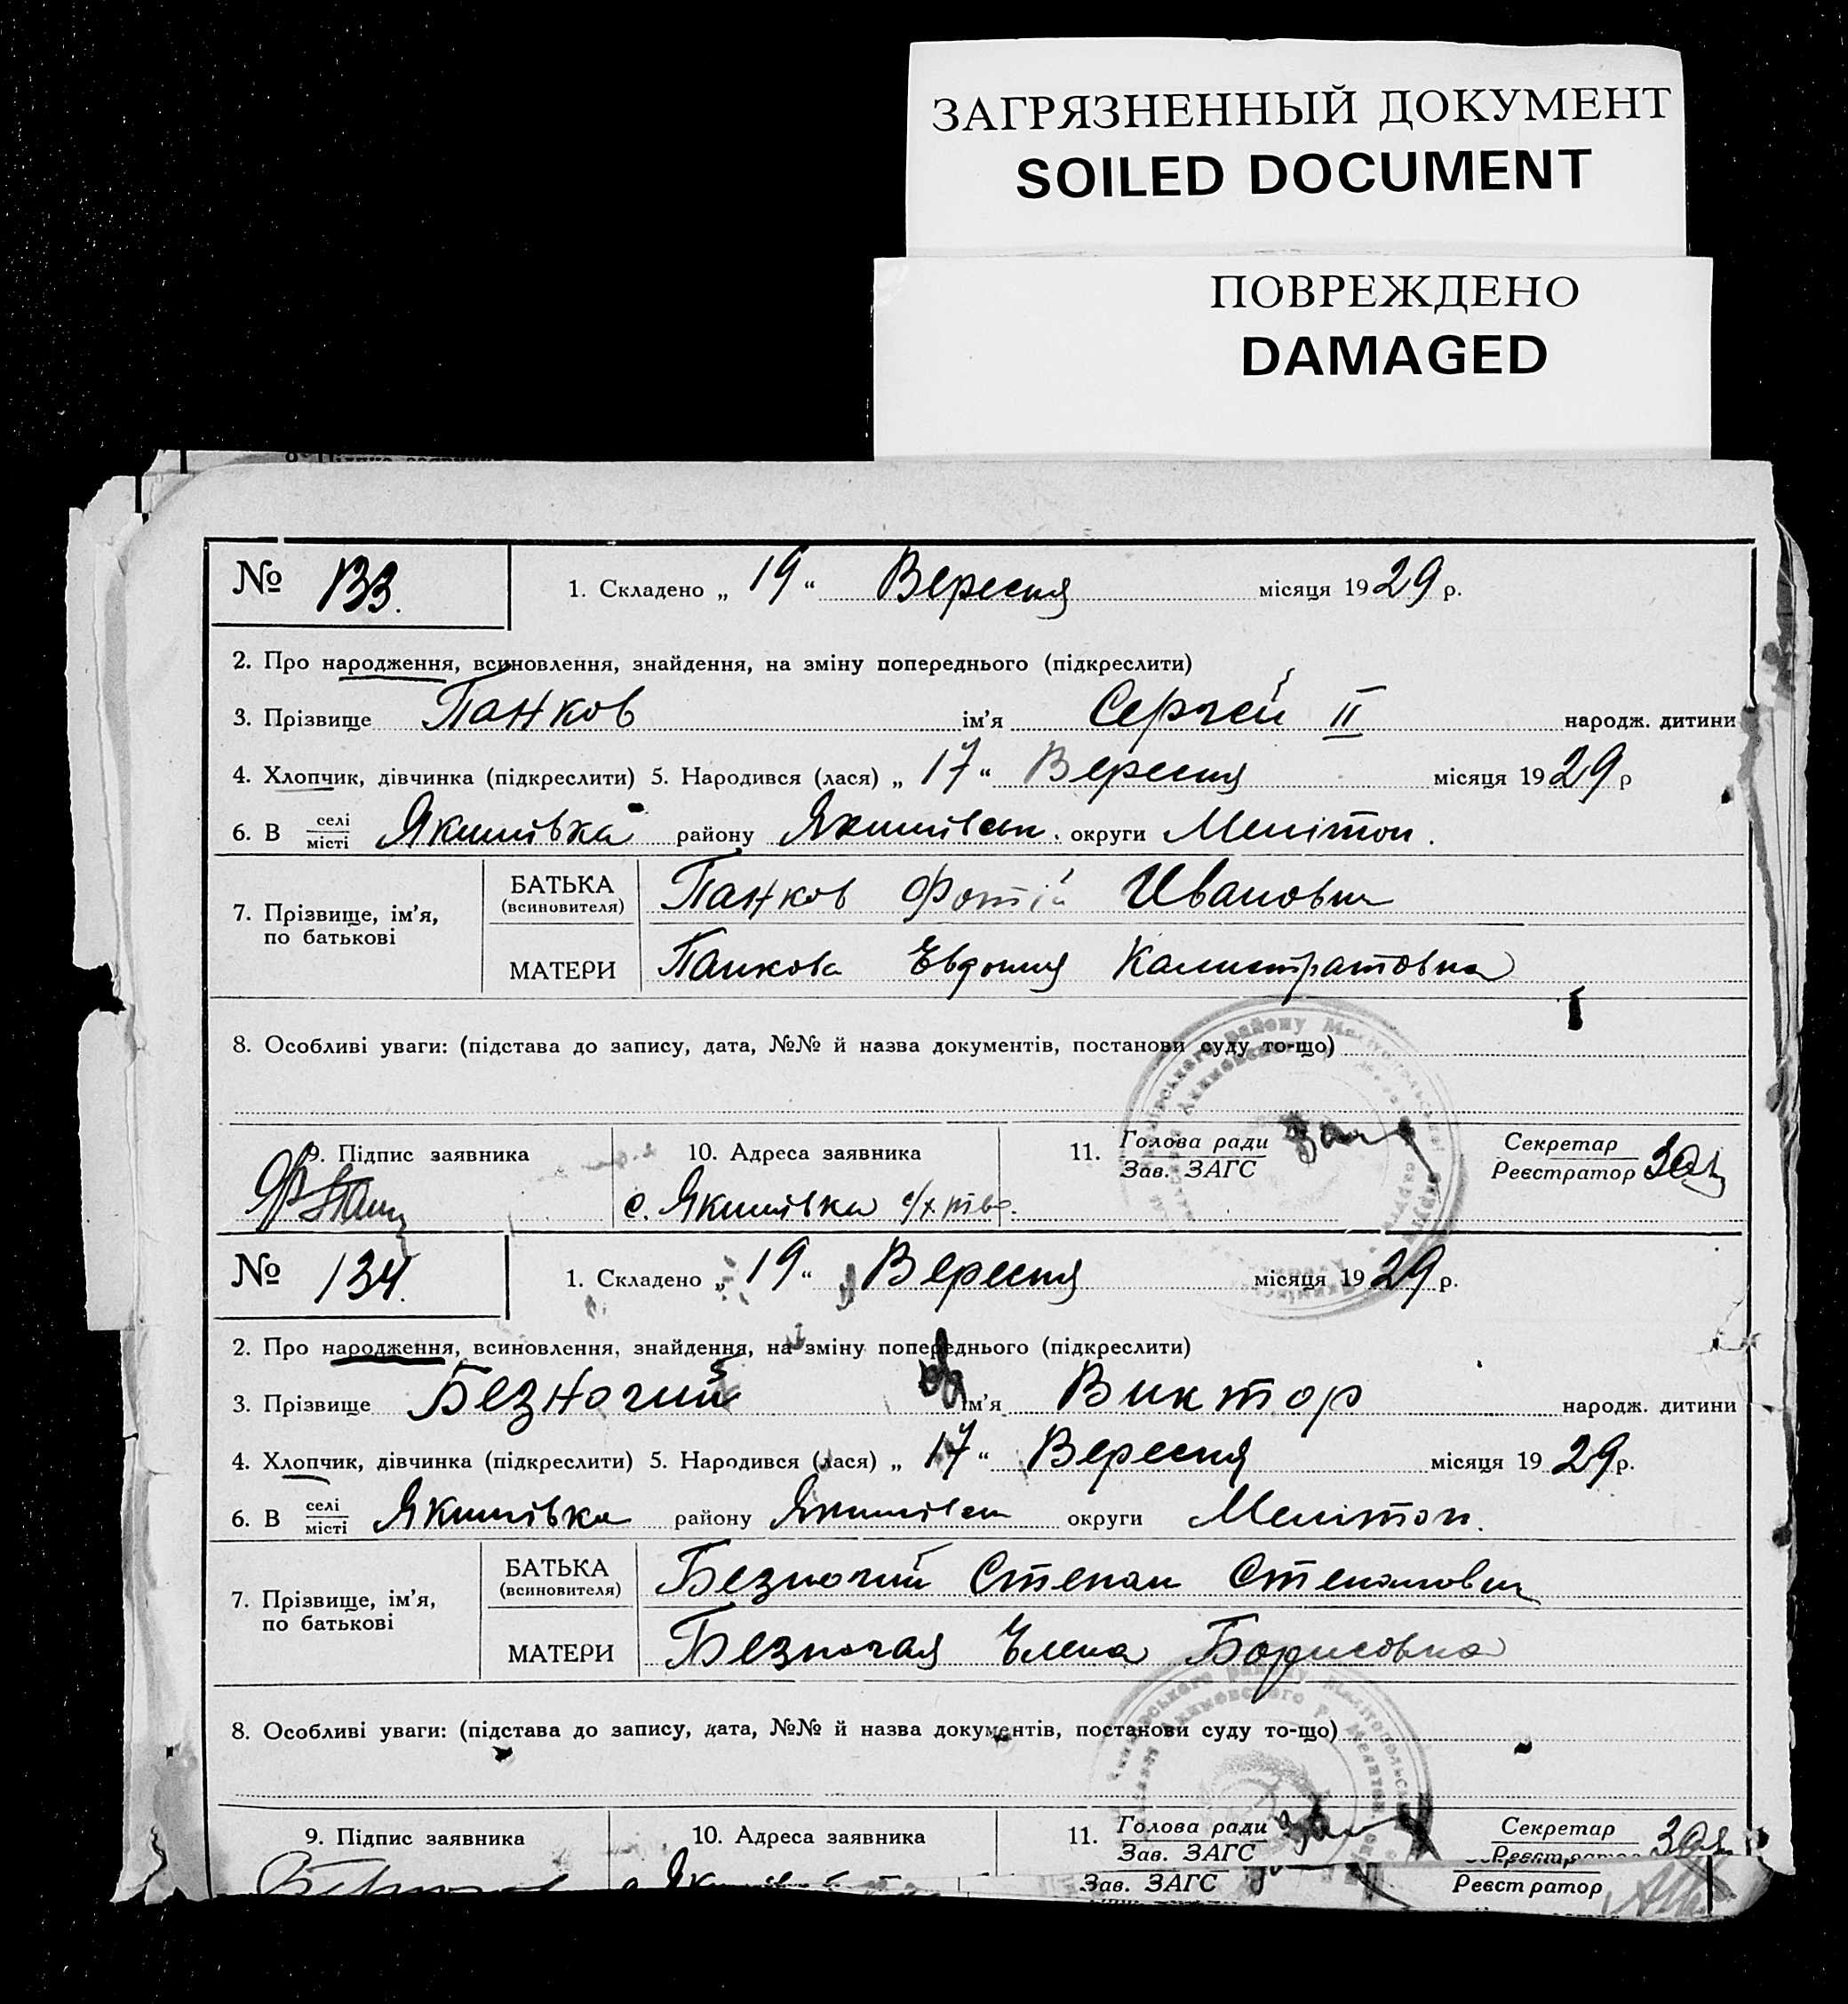 ЗАГРЯЗНЕННЫЙ ДОКУМЕНТ
SOILED DOCUMENT
ПОВРЕЖДЕНО
DAMAGED
№ 133.
1. Складено „ 19 “ Вересня місяця 1929 р.
2. Про народження, всиновлення, знайдення, на зміну попереднього (підкреслити)
3. Прізвище Панков ім’я Сергей II народж. дитини
4. Хлопчик, дівчинка (підкреслити) 5. Народився (лася) „ 17 “ Вересня місяця 1929 р
6. В селі/місті Якимівка району Якимівськ. округи Мелітоп.
7. Прізвище, ім’я, по батькові
БАТЬКА (всиновителя) Панков Фотій Иванович
МАТЕРИ Панкова Евдокия Калистратовна
8. Особливі уваги: (підстава до запису, дата, №№ й назва документів, постанови суду то-що)
9. Підпис заявника
10. Адреса заявника
11. Голова ради
Зав. ЗАГС
Секретар
Реєстратор
с. Якимівка с/х
№ 134.
1. Складено „ 19 “ Вересня місяця 1929 р.
2. Про народження, всиновлення, знайдення, на зміну попереднього (підкреслити)
3. Прізвище Безногий ім’я Виктор народж. дитини
4. Хлопчик, дівчинка (підкреслити) 5. Народився (лася) „ 17 “ Вересня місяця 1929 р.
6. В селі/місті Якимівка району Якимівськ округи Мелітоп.
7. Прізвище, ім’я, по батькові
БАТЬКА (всиновителя) Безногий Степан Степанович
МАТЕРИ Безногая Елена Борисовна
8. Особливі уваги: (підстава до запису, дата, №№ й назва документів, постанови суду то-що)
9. Підпис заявника
10. Адреса заявника
11. Голова ради
Зав. ЗАГС
Секретар
Реєстратор
Зав. ЗАГС
Реєстратор